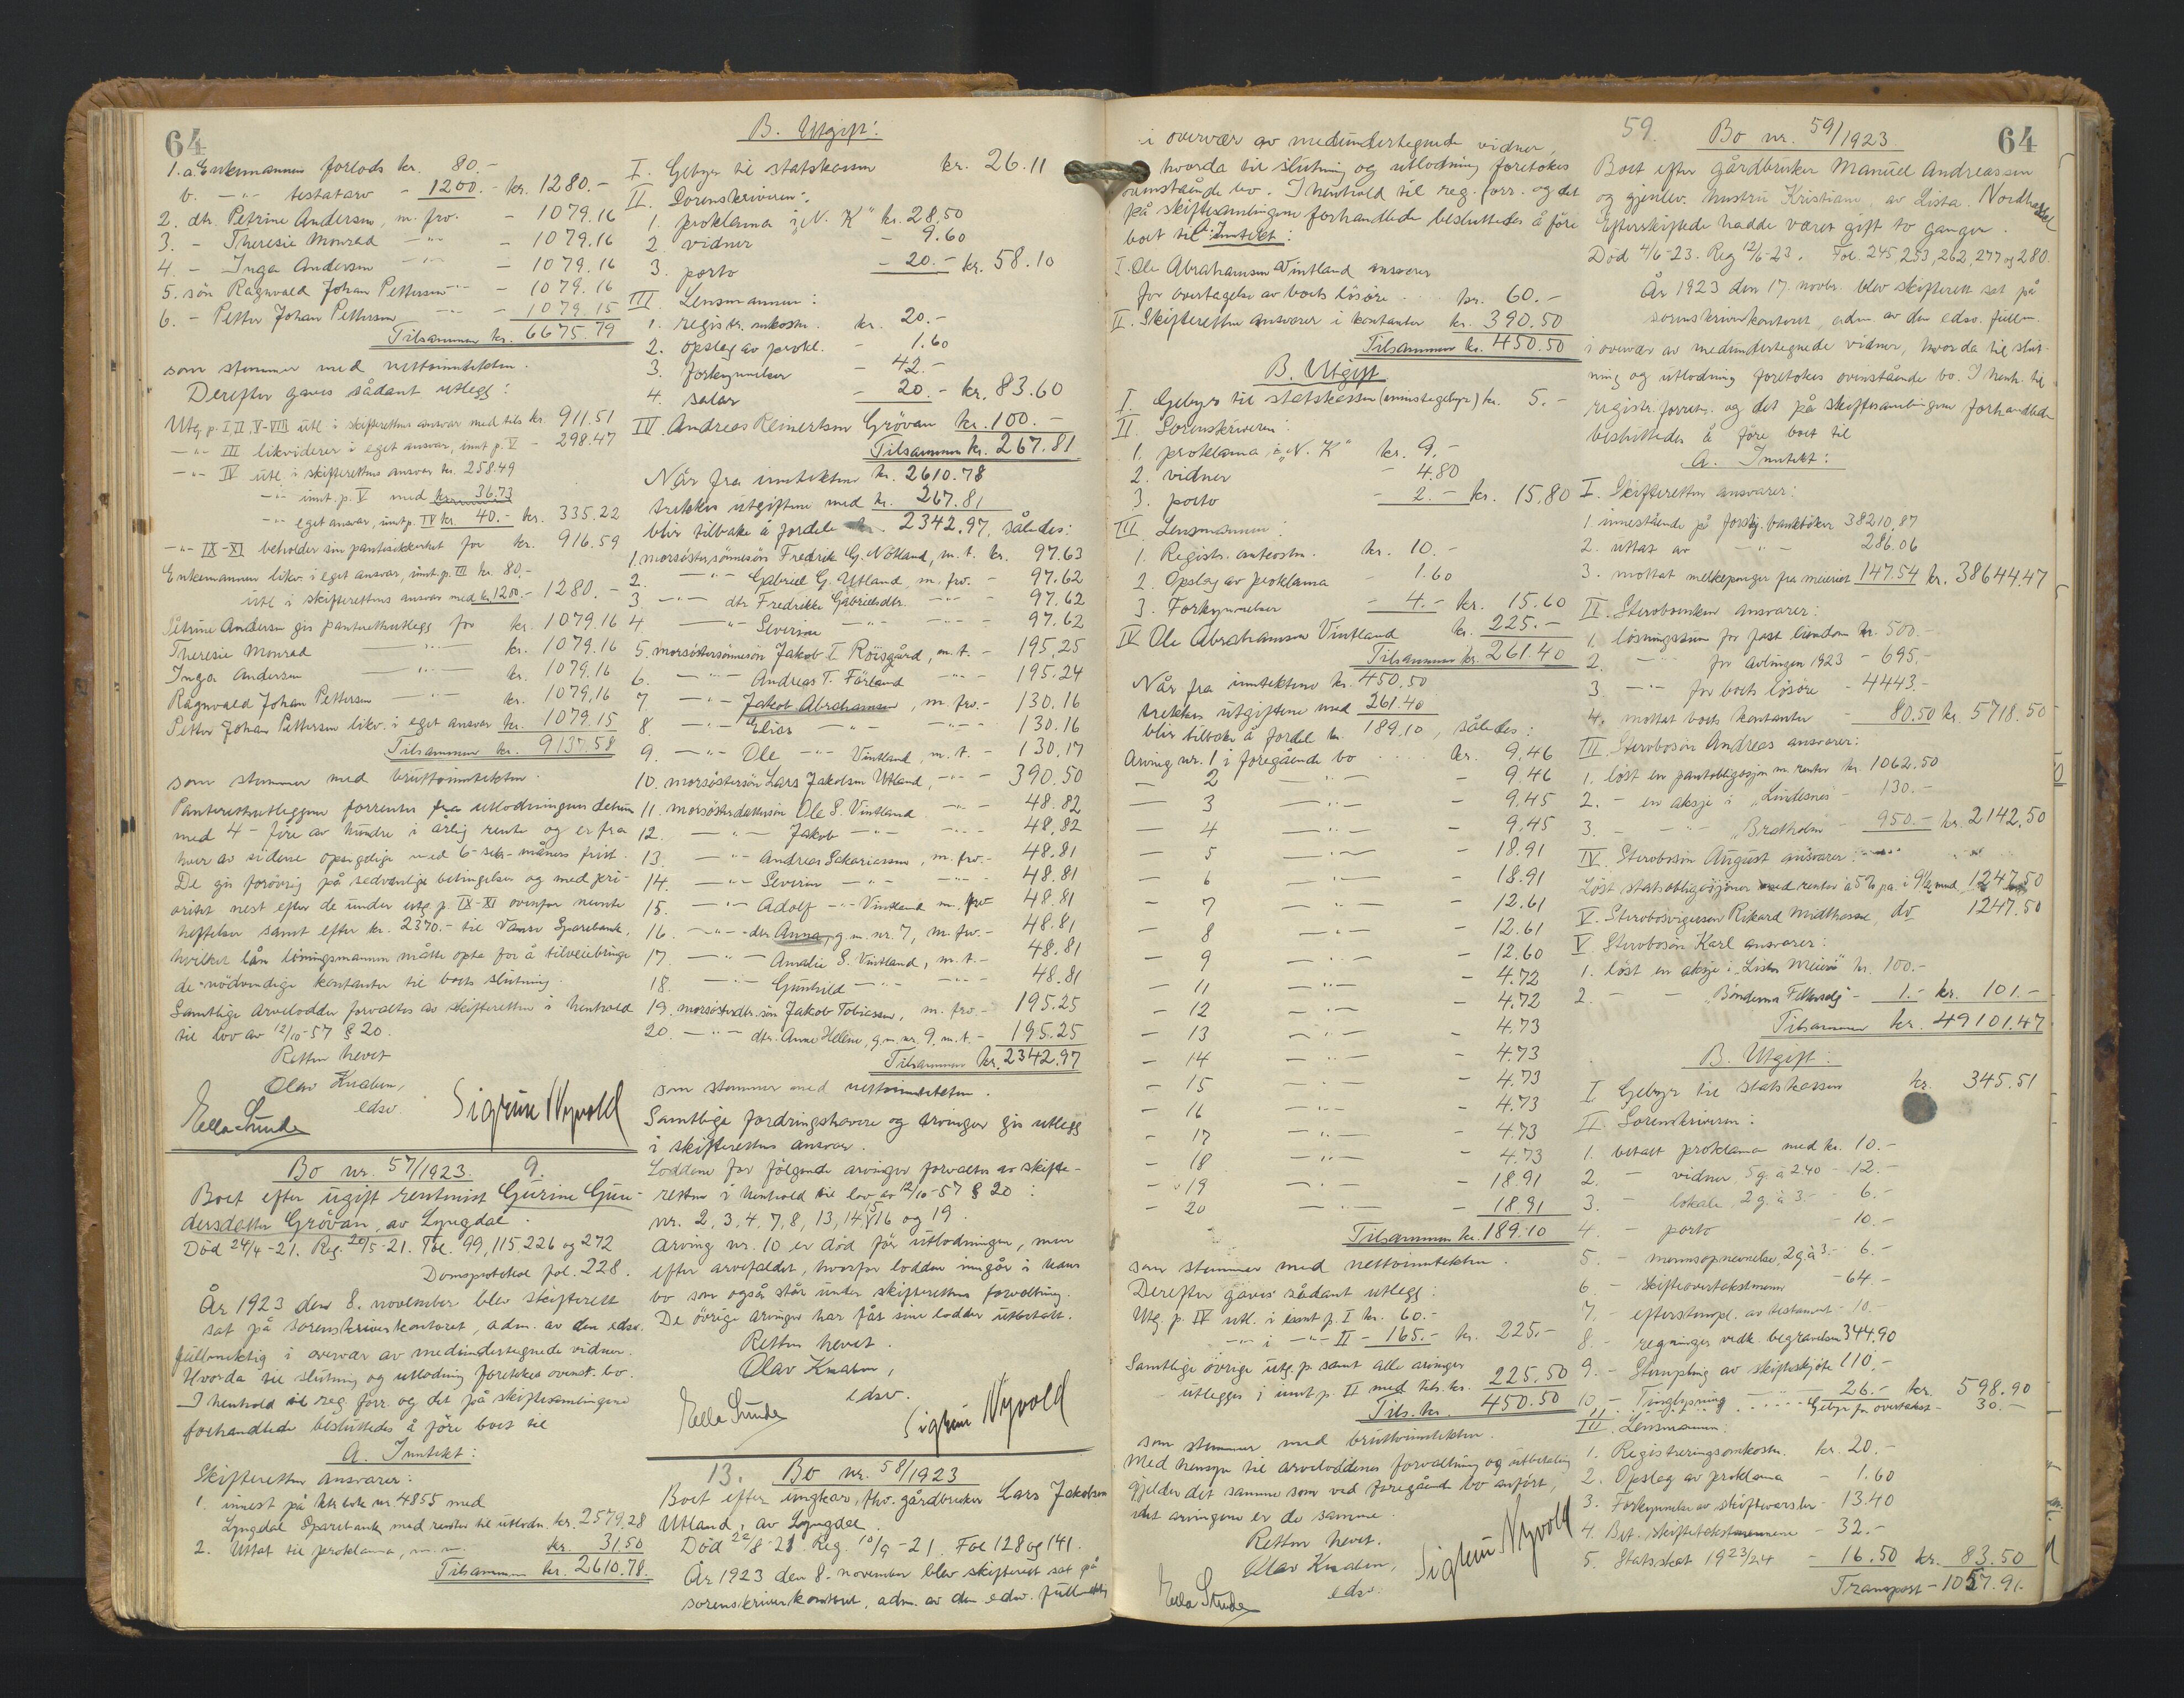 64
1. a. Enkemannen forlods kr. 80.-
b. -"- testatarv - 1200.- kr. 1280.-
2. dtr. Petrine Andersen, m. frv. - 1079.16
3. - Theresie Monrad -"- - 1079.16
4. - Inga Andersen -"- - 1079.16
5. sön Ragnvald Johan Pettersen -"- - 1079.16
6. - Petter Johan Pettersen -"- - 1079.15
Tilsammen kr. 6675.79
som stemmer med nettoinntekten.
Derefter gaves sådant utlegg:
Utg. p. I, II, V-VIII utl. i skifterettens ansvar med tils. kr. 911.51
-"- III likviderer i eget ansvar, innt. p. V - 298.47
-"- IV utl. i skifterettens ansvar kr. 258.49
-"- innt. p. V med kr. 36.73
-"- eget ansvar, innt p. IV kr. 40.- kr. 335.22
-"- IX-XI beholder sin pantsikkerhet for kr. 916.59
Enkemannen likv. i eget ansvar, innt. p. III kr. 80.-
utl. i skifterettens ansvar med kr. 1200.- 1280.-
Petrine Andersen gis panterettsutlegg for kr. 1079.16
Theresie Monrad -"- kr. 1079.16
Inga Andersen -"- kr. 1079.16
Ragnvald Johan Pettersen -"- kr. 1079.16
Petter Johan Pettersen likv. i eget ansvar kr. 1079.15
Tilsammen kr. 9137.58
som stemmer med bruttoinntekten.
Panterettsutleggene forrentes fra utlodningens datum
med 4 - fire av hundre i årlig rente og er fra
hver av sidene opsigelige med 6-seks-måners frist.
De gis forövrig på sedvanlige betingelser og med pri-
oritet nest efter de under utg. p. IX-XI ovenfor nevnte
heftelser samt efter kr. 2370.- til Vanse Sparebank,
hvilket lån lösningsmannen måtte opta for å tilveiebringe
de nödvendige kontanter til boets slutning.
Samtlige arvelodder forvaltes av skifteretten i henhold
til lov av 12/10-57 § 20.
Retten hevet
Olav Knaben,
edsv.
Ella Sunde Sigrun Nyvold
Bo nr. 57/1923. 9.
Boet efter ugift rentenist Gurine Gun-
dersdatter Grövan, av Lyngdal.
Död 24/4-21. Reg. 20/5-21. Fol. 99, 115, 226 og 272
Domsprotokol fol. 228.
År 1923 den 8. november blev skifterett
sat på sorenskriverkontoret, adm. av den edsv.
fullmektig i overvær av medundertegnede vidner.
Hvorda til slutning og utlodning foretokes ovenst. bo.
I henhold til reg. forr. og det på skiftesamlingene
forhandlede besluttedes å före boet til
A. Inntekt:
Skifteretten ansvarer:
1. innest på ktr. bok nr. 4855 med
Lyngdal Sparebank med renter til utlodn. kr. 2579.28
2. Uttat til proklama, m.m. kr. 31.50
Tilsammen kr. 2610.78.
B. Utgift:
I. Gebyr til statskassen kr. 26.11
II. Sorenskriveren:
1. proklama i „N. K" kr. 28.50
2. vidner - 9.60
3. porto - 20.- kr. 58.10
III. Lensmannen:
1. registr. omkostn. kr. 20.-
2. opslag av prokl. - 1.60
3. forkynnelser - 42.-
4. salær - 20.- kr. 83.60
IV. Andreas Reinertsen Grövan kr. 100.-
Tilsammen kr. 267.81
Når fra inntekten kr. 2610.78
trekkes utgiftene med kr. 267.81
blir tilbake å fordele kr. 2342.97, således:
1. morsösters sönnesön Fredrik G. Nötland, m. t. kr. 97.63
2. -"- Gabriel G. Utland, m. frv. - 97.62
3. -"- dtr. Fredrikke Gabrielsdtr. -"- - 97.62
4. -"- Severine -"- -"- - 97.62
5. morsöstersönnesön Jakob T. Röisgård, m. t. - 195.25
6. -"- Andreas T. Förland -"- - 195.24
7. -"- Jakob Abrahamsen, m. frv. - 130.16
8. -"- Elias -"- -"- - 130.16
9. -"- Ole -"- Vintland, m. t. - 130.17
10. morsöstersön Lars Jakobsen Utland, -"- - 390.50
11. morsösterdattersön Ole S. Vintland -"- - 48.82
12. -"- Jakob -"- -"- - 48.82
13. -"- Andreas Sakariassen, m. frv. - 48.81
14. -"- Severin -"- -"- - 48.81
15. -"- Adolf -"- Vintland m. frv. 48.81
16. -"- dtr. Anna, g. m. nr. 7, m. frv. - 48.81
17. -"- Amalie S. Vintland, m. t. - 48.81
18. -"- Gunhild -"- -"- 48.81
19. morsösterdtr. sön Jakob Tobiassen, m. frv. - 195.25
20. -"- dtr. Anne Helene, g. m. nr. 9, m. t. - 195.25
Tilsammen kr. 2342.97
som stemmer med nettoinntekten.
Samtlige fordringshavere og arvinger gis utlegg
i skifterettens ansvar.
Loddene for fölgende arvinger forvaltes av skifte-
retten i henhold til lov av 12/10-57 § 20:
nr. 2, 3, 4, 7, 8, 13, 14, 15, 16 og 19.
Arving nr. 10 er död för utlodningen, men
efter arvefaldet, hvorfor lodden inngår i hans
bo som også står under skifterettens forvaltning.
De övrige arvinger har fåt sine lodder utbetalt.
Retten hevet.
Olav Knaben,
edsv.
Ella Sunde Sigrun Nyvold
13. Bo nr. 58/1923
Boet efter ungkar, fhv. gårdbruker Lars Jakobsen
Utland, av Lyngdal.
Död 22/8-21 Reg. 10/9-21. Fol 128 og 141.
År 1923 den 8. november blev skifterett sat på
sorenskriverkontoret, adm. av den edsv. fullmektig
i overvær av medundertegnede vidner,
hvorda til slutning og utlodning foretokes
ovenstående bo. I henhold til reg. forr. og det
på skiftesamlingene forhandlede besluttedes å före
boet til A. Inntekt:
I. Ole Abrahamsen Vintland ansvarer
for overtagelse av boets lösöre kr. 60.-
II. Skifteretten ansvarer i kontanter kr. 390.50
Tilsammen kr. 450.50
B. Utgift
I. Gebyr til statskassen (minstegebyr) kr. 5.-
II. Sorenskriveren:
1. proklama i „N. K" kr. 9.-
2. vidner - 4.80
3. porto - 2.- kr. 15.80
III. Lensmannen:
1. Registr. omkostn. kr. 10.-
2. Opslag av proklama - 1.60
3. Forkynnelser - 4.- kr. 15.60
IV Ole Abrahamsen Vintland kr. 225.-
Tilsammen kr. 261.40
Når fra inntektene kr. 450.50
trekkes utgiftene med 261.40
blir tilbake å fordele kr. 189.10, således:
Arving nr. 1 i foregående bo kr. 9.46
- 2 -"- - 9.46
- 3 -"- - 9.45
- 4 -"- - 9.45
- 5 -"- - 18.91
- 6 -"- - 18.91
- 7 -"- - 12.61
- 8 -"- - 12.61
- 9 -"- - 12.60
- 11 -"- - 4.72
- 12 -"- - 4.72
- 13 -"- - 4.73
- 14 -"- - 4.73
- 15 -"- - 4.73
- 16 -"- - 4.73
- 17 -"- - 4.73
- 18 -"- - 4.73
- 19 -"- - 18.91
- 20 -"- - 18.91
Tilsammen kr. 189.10
som stemmer med nettoinntekten.
Derefter gaves sådant utlegg:
Utg. p. IV utl. i innt p. I kr. 60.-
-"- i -"- II - 165.- kr. 225.-
Samtlige övrige utg. p. samt alle arvinger
utlegges i innt p. II med tils. kr. 225.50
Tils. kr. 450.50
som stemmer med bruttoinntekten.
Med hensyn til arveloddenes forvaltning og utbetaling
gjelder det samme som ved foregående bo anfört,
idet arvingene er de samme.
Retten hevet.
Olav Knaben,
edsv.
Ella Sunde Sigrun Nyvold
59. Bo nr. 59/1923 64
Boet efter gårdbruker Manuel Andreassen
og gjenlev. hustru Kristiane, av Lista. Nordhassel
Efterskiftede hadde været gift to ganger.
Död 4/6-23. Reg 12/6-23. Fol. 245, 253, 262, 277 og 280.
År 1923 den 17. novbr. blev skifterett sat på
sorenskriverkontoret, adm. av den edsv. fullm.
i overvær av medundertegnede vidner, hvorda til slut-
ning og utlodning foretokes ovenstående bo. I henh. til
registr. forretn. og det på skiftesamlingene forhandlede
besluttedes å före boet til
A. Inntekt:
I. Skifteretten ansvarer:
1. innestående på forskj. bankböker 38210.87
2. uttat av -"- 286.06
3. mottat melkepenger fra meieriet 147.54 kr. 38644.47
II. Stervboenken ansvarer:
1. lösningssum for fast eiendom kr. 500.-
2. -"- for avlingen 1923 - 695.-
3. -"- for boets lösöre - 4443.-
4. mottat boets kontanter - 80.50 kr. 5718.50
III. Stervbosön Andreas ansvarer:
1. löst en pantobligasjon m. renter kr. 1062.50
2. - en aksje i „Lindesnes" - 130.-
3. - -"- „Bratholm" - 950.- kr. 2142.50
IV. Stervbosön August ansvarer:
Löst statsobligasjoner med renter à 5% p.a. i 9 1/2 mnd. 1247.50
V. Stervbosvigersön Rikard Midthassel, do 1247.50
V. Stervbosön Karl ansvarer:
1. löst en aksje i „Lista Meieri" kr. 100.-
2. - - „Böndernes Fellessalg" - 1.- kr. 101.-
Tilsammen kr. 49101.47
B. Utgift:
I. Gebyr til statskassen kr. 345.51
II. Sorenskriveren:
1. betalt proklama med kr. 10.-
2. - vidner, 5 g. à 2.40 - 12.-
3. - lokale, 2 g. à 3.- - 6.-
4. - porto - 10.-
5. - mennsopnevnelse, 2 g à 3.- 6.-
6. - skifteovertakstmenn - 64.-
7. - efterstempl. av testament - 10.-
8. - regninger vedk. begravelsen 344.90
9. - Stempling av skifteskjöte 110.-
10. - Tinglysning -"- 26.- kr. 598.90
11. Gebyr for overtakst - 30.-
III. Lensmannen:
1. Registreringsomkostn. kr. 20.-
2. Opslag av proklama - 1.60
3. Forkynnelse av skiftevarsler - 13.40
4. Bet. skiftetakstmennene - 32.-
5. Statsskat 1923/24 - 16.50 kr. 83.50
Transport - 1057.91.